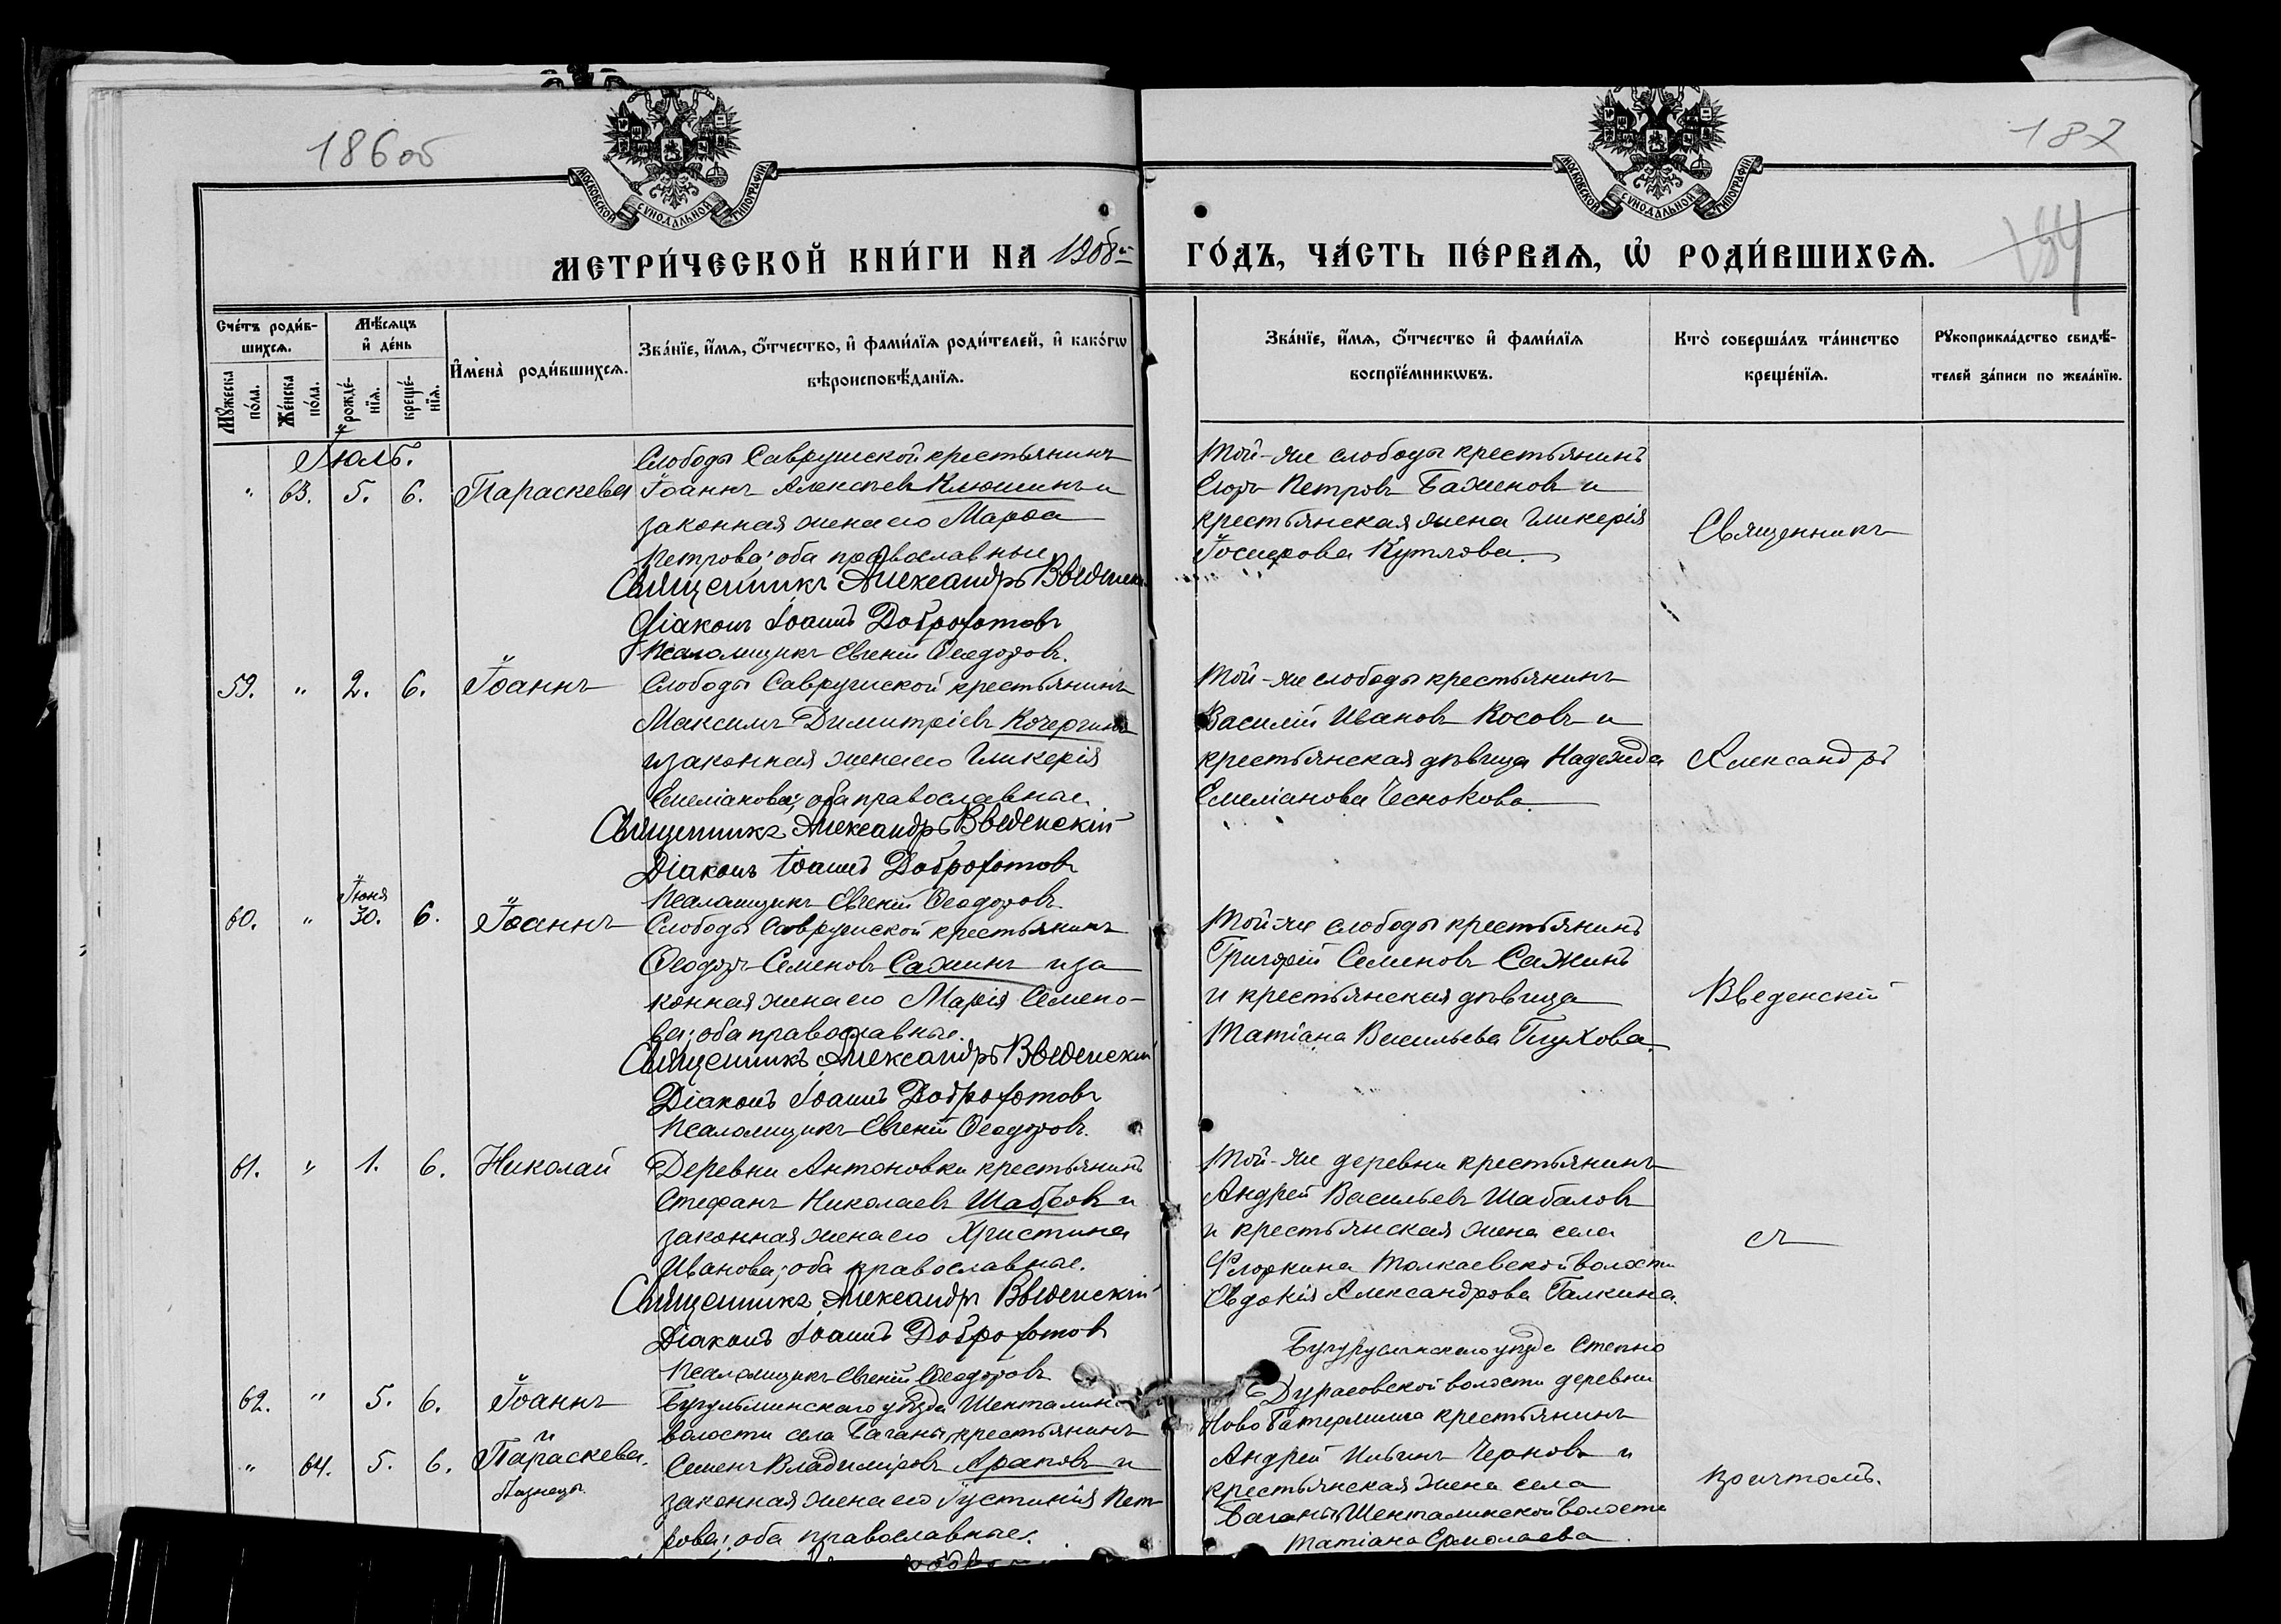 186об
187
184
МОСКОВСКОЙ СѴНОДАЛЬНОЙ ТИПОГРАФІИ
МОСКОВСКОЙ СѴНОДАЛЬНОЙ ТИПОГРАФІИ
МЕТРИ́ЧЕСКОЙ КНИ́ГИ НА 1908й
ГО́ДЪ, ЧА́СТЬ ПЕ́РВАѦ, Ѡ҆ РОДИ́ВШИХСѦ.
Сче́тъ роди́в-
шихсѧ.
Мꙋ́жеска по́ла.
Же́нска по́ла.
Мѣ́сѧцъ
и҆ де́нь
рожде́-
нїѧ.
креще́-
нїѧ.
И҆мена̀ роди́вшихсѧ.
Зва́нїе, и҆́мѧ, ѻ҆́тчество, и҆ фами́лїѧ роди́телей, и҆ како́гѡ
вѣроисповѣ́данїѧ.
Зва́нїе, и҆́мѧ, ѻ҆́тчество и҆ фами́лїѧ
воспрїе́мникѡвъ.
Кто̀ соверша́лъ та́инство
креще́нїѧ.
Рꙋкоприкла́дство свидѣ́-
телей за́писи по жела́нїю.
Іюль.
" 63. 5. 6. Параскева
Слободы Саврушской крестьянинъ
Іоаннъ Алексѣевъ Клюшинъ и
законная жена его Марѳа
Петрова; оба православные
Священникъ Александръ Введенскі
Діаконъ Іоаннъ Доброхотовъ
Псаломщикъ Евгеній Ѳеодоровъ.
Той-же слободы крестьянинъ
Егоръ Петровъ Баженовъ и
крестьянская жена Гликерія
Іосифова Кутлова.
Священникъ
59. " 2. 6. Іоаннъ
Слободы Саврушской крестьянинъ
Максимъ Димитріевъ Кочергинъ
и законная жена его Гликерія
Емеліанова; оба православные.
Священникъ Александръ Введенскій
Діаконъ Іоаннъ Доброхотовъ
Псаломщикъ Евгеній Ѳеодоровъ.
Той-же слободы крестьянинъ
Василій Ивановъ Косовъ и
крестьянская дѣвица Надежда
Емеліанова Чеснокова.
Александръ
60. " Іюня 30. 6. Іоаннъ
Слободы Саврушской крестьянинъ
Ѳеодоръ Семеновъ Сажинъ и за
конная жена его Марія Семено-
ва; оба православные.
Священникъ Александръ Введенскій
Діаконъ Іоаннъ Доброхотовъ
Псаломщикъ Евгеній Ѳеодоровъ.
Той-же слободы крестьянинъ
Григорій Семеновъ Сажинъ
и крестьянская дѣвица
Татіана Васильева Глухова.
Введенскій
61. " 1. 6. Николай
Деревни Антоновки крестьянинъ
Стефанъ Николаевъ и
законная жена его Христина
Иванова; оба православные.
Священникъ Александръ Введенскій
Діаконъ Іоаннъ Доброхотовъ
Псаломщикъ Евгеній Ѳеодоровъ
Той-же деревни крестьянинъ
Андрей Васильевъ Шабаловъ
и крестьянская жена села
Флоркина Толкаевской волости
Евдокія Александрова Галкина.
съ
62. " 5. 6. Іоаннъ
и
" 64. 5. 6. Параскева.
близнецы.
Бугульминскаго уѣзда Шенталин.
волости села Баганы, крестьянинъ
Семенъ Владиміровъ Араповъ и
законная жена его Іустинія Пет-
рова; оба православные.
Бугурусланскаго уѣзда Степно
Дурасовской волости деревни
крестьянинъ
Андрей Ильинъ Черновъ и
крестьянская жена села
Баганы Шенталинской волости
Татіана Ермолаева.
причтомъ.